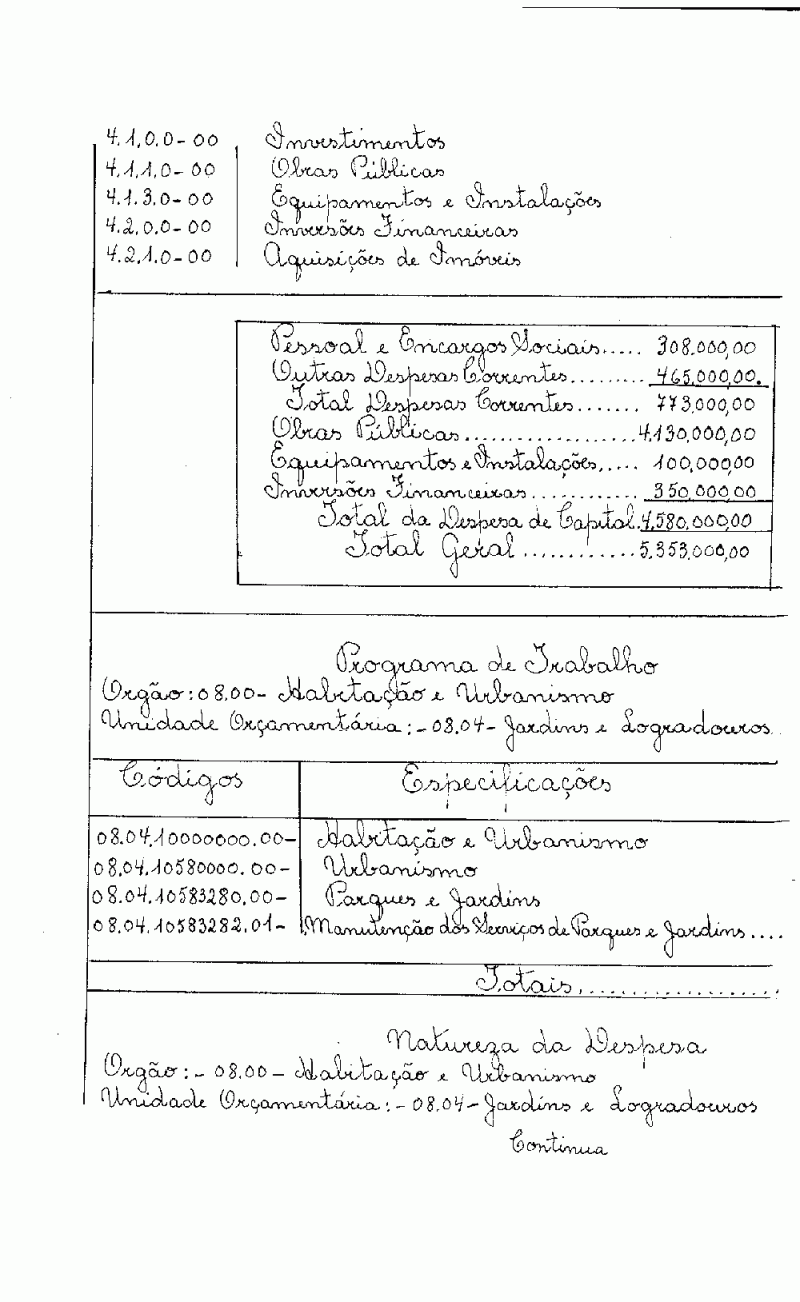 4.1.0.0-00 Investimentos
4.1.1.0-00 Obras Públicas
4.1.3.0-00 Equipamentos e Instalações
4.2.0.0-00 Inversões Financeiras
4.2.1.0-00 Aquisições de Imóveis
Pessoal e Encargos Sociais..... 308.000,00
Outras Despesas Correntes......... 465.000,00.
Total Despesas Correntes....... 773,000,00
Obras Públicas.................. 4.130,000,00
Equipamentos e Instalações..... 100,000,00
Inversões Financeiras............ 350.000,00
Total da Despesa de Capital. 4.580.000,00
Total Geral ............ 5.353.000,00
Programa de Trabalho
Orgão: 08.00- Habitação e Urbanismo
Unidade Orçamentária: -08.04- Jardins e Logradouros.
Códigos Especificações
08.04.10000000.00- Habitação e Urbanismo
08.04.10580000.00- Urbanismo
08.04.10583280.00- Parques e Jardins
08.04.10583282.01- Manutenção dos Serviços de Parques e Jardins....
Totais..................
Natureza da Despesa
Orgão: - 08.00 - Habitação e Urbanismo
Unidade Orçamentária: -08.04- Jardins e Logradouros
Continua